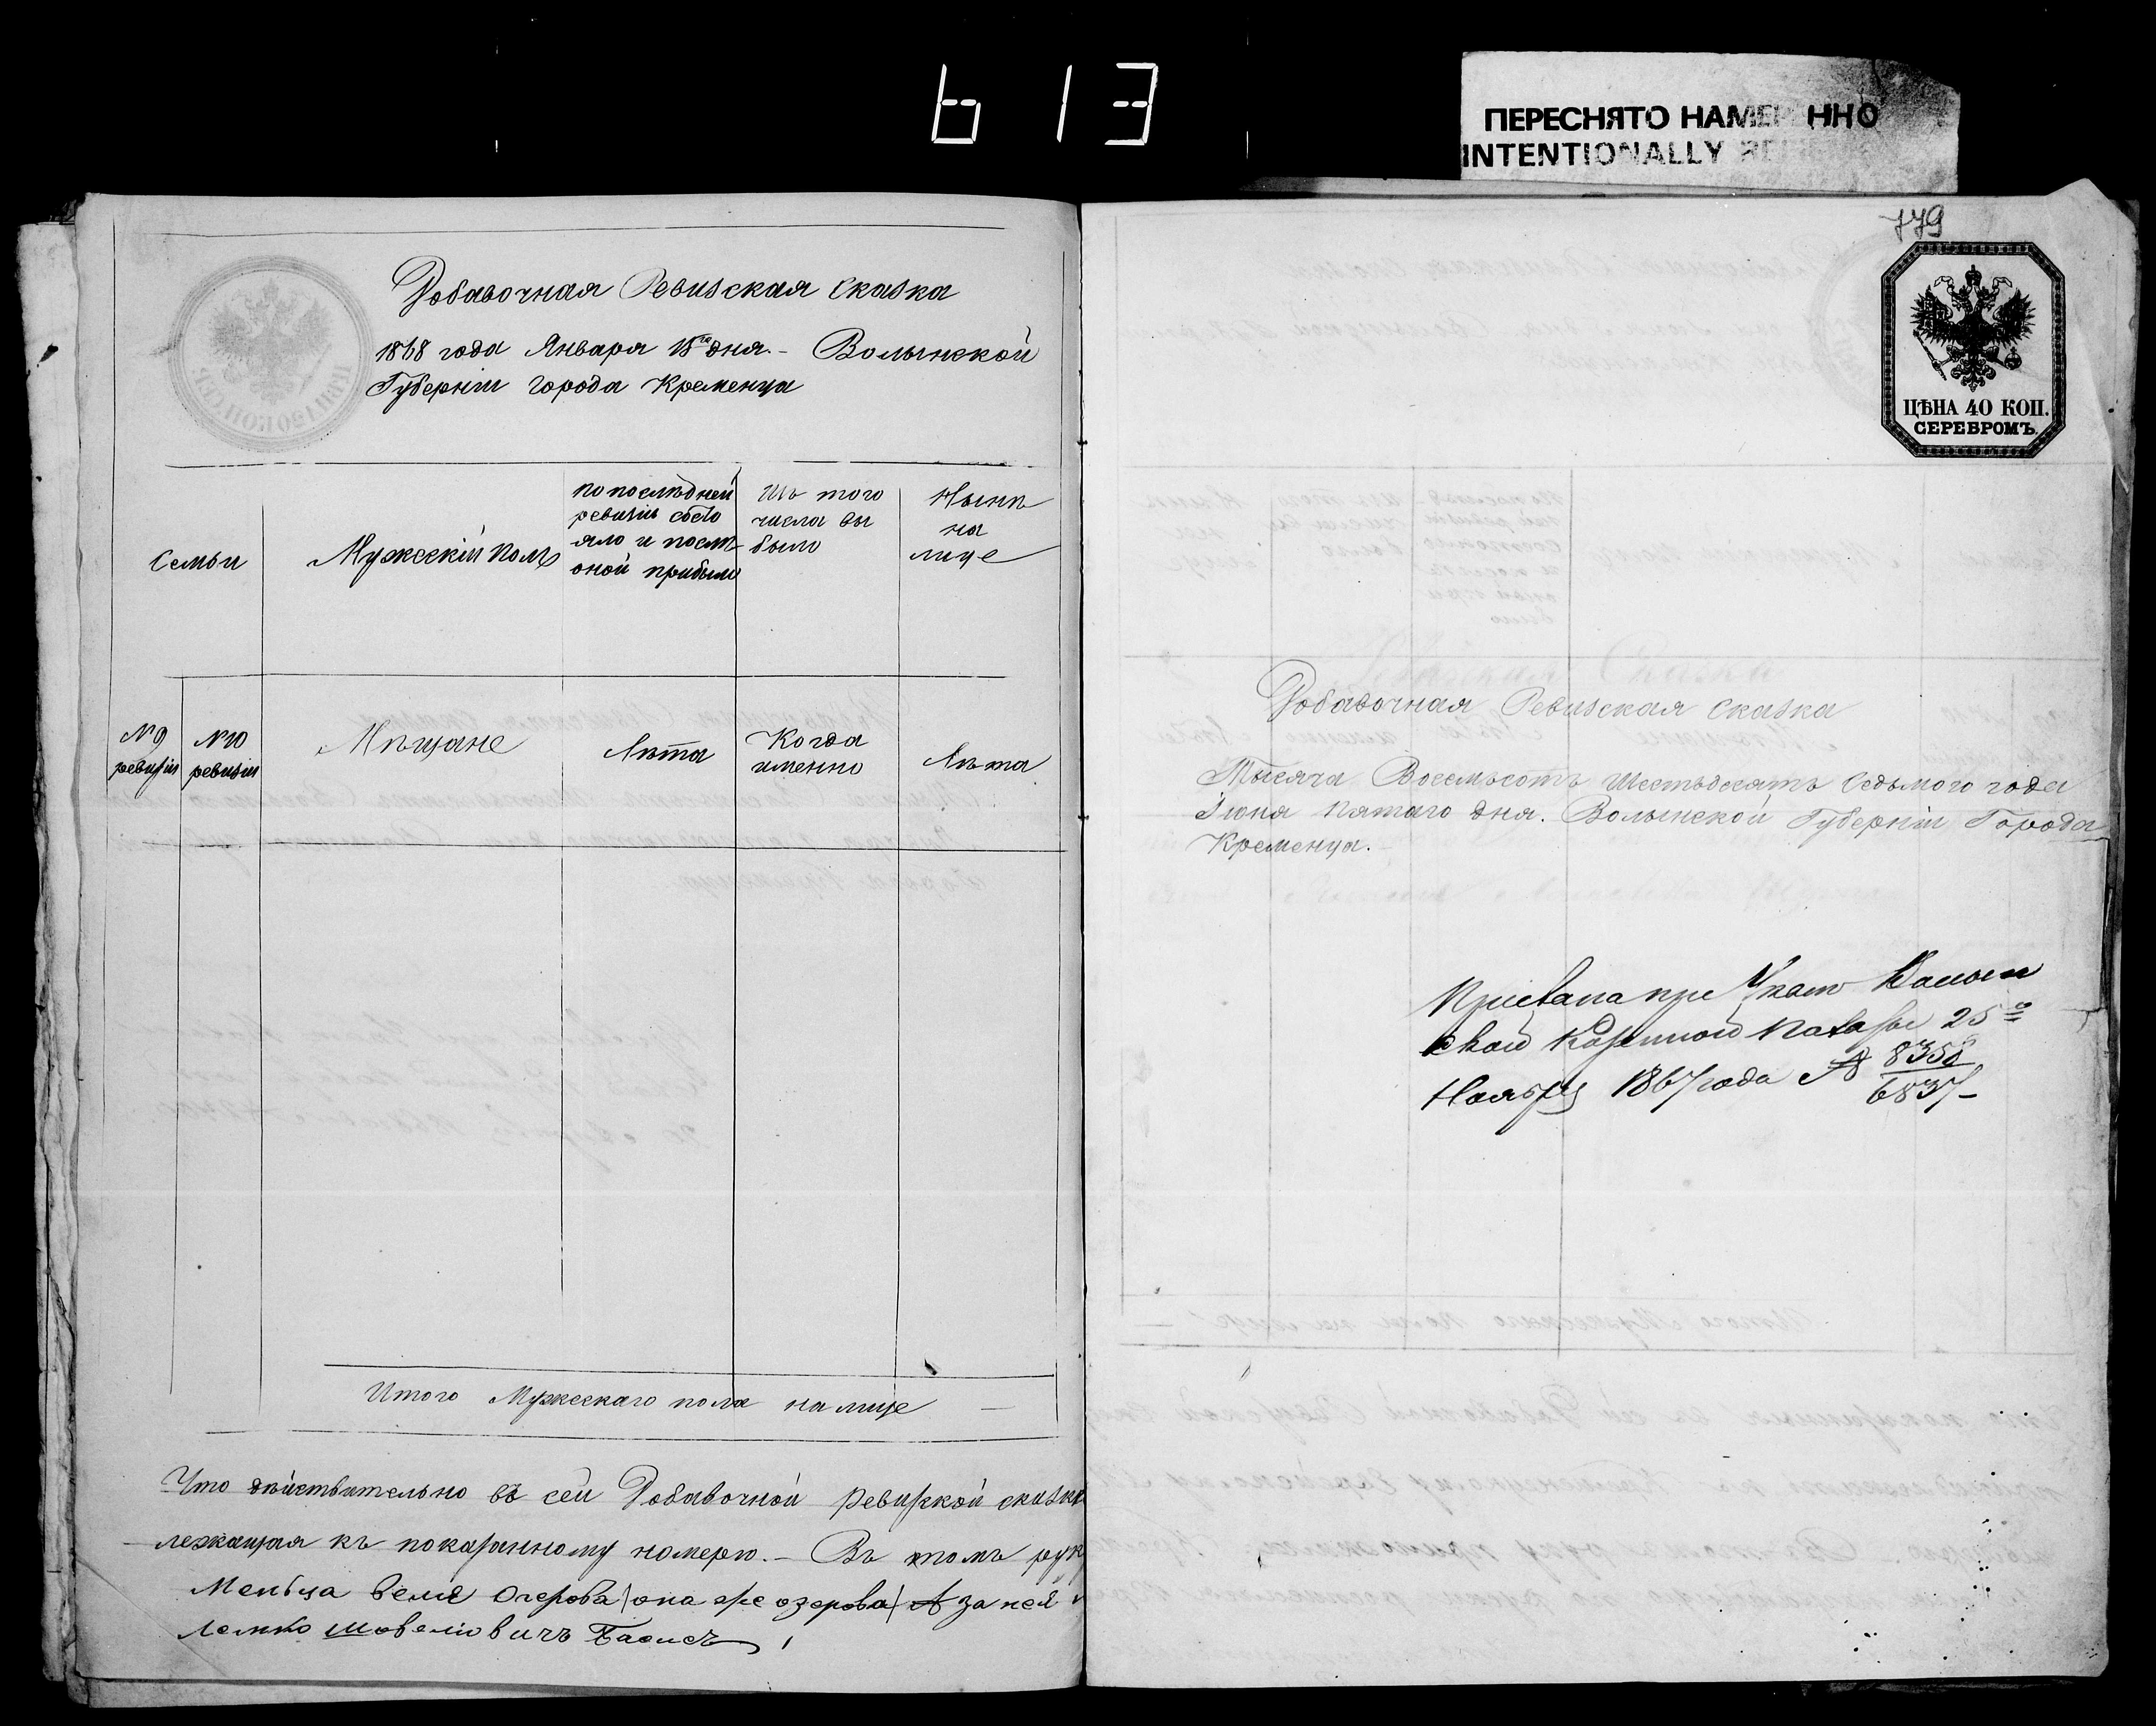 613
ПЕРЕСНЯТО НАМЕ ННО
INTENTIONALLY
Добавочная Ревизская Сказка
1868 года Января 15го дня. – Волынской
Губерніи города Кременца
Семьи
Мужескій полъ
по послѣдней
ревизіи состо
яло и послѣ
оной прибыло
Изъ того
числа вы
было
Нынѣ
на
лице
№ 9
ревизіи
№ 10
ревизіи
Мѣщане
Лѣта
Когда
именно
Лѣта
Итого Мужескаго пола на лице —
Что дѣйствительно въ сей Добавочной Ревизкой сказкѣ
лежащая къ показанному номерю. – Въ томъ рук
она же озерова за нея
779
ЦѢНА 40 КОП.
СЕРЕБРОМЪ.
Добавочная Ревизская Сказка
Тысяча Восемьсотъ Шестьдесятъ Седьмого года
Іюня пятаго дня. Волынской Губерніи Города
Кременца. –
Прислана при Указѣ Волын
ской Казенной Палаты 25го
Ноября 1867 года № 8358
6837 –